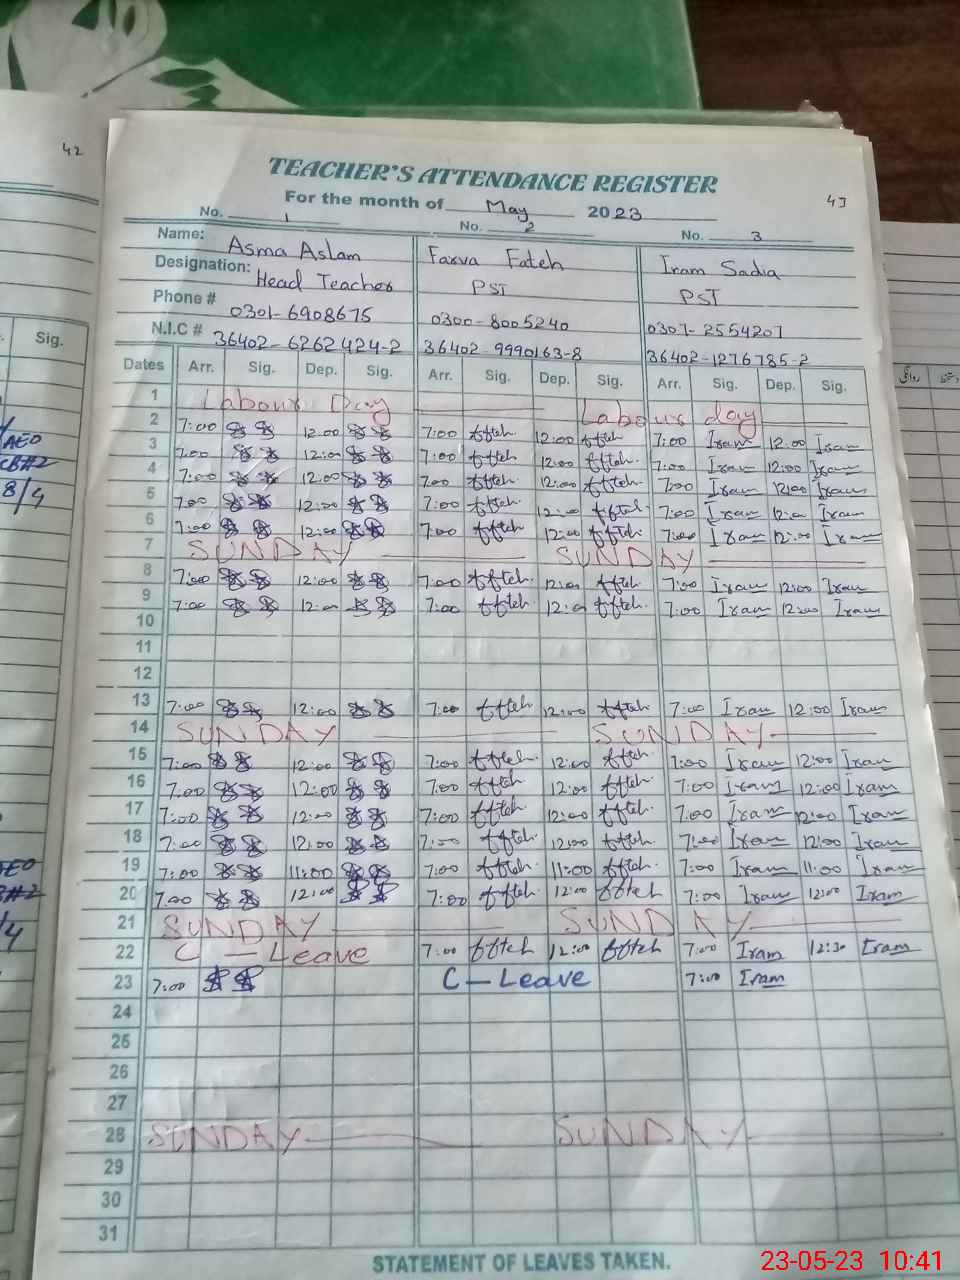 42
TEACHER'S ATTENDANCE REGISTER
For the month of May 2023
43
No. 1 No. 2 No. 3
Name: Asma Aslam Farva Fateh Iram Sadia
Designation: Head Teacher PST PST
Phone # 0301-6908675 0300-8005240 0307-2554207
N.I.C # 36402-6262424-2 36402-9990163-8 36402-1276785-2
Sig.
Dates Arr. Sig. Dep. Sig. Arr. Sig. Dep. Sig. Arr. Sig. Dep. Sig.
1 Labour Day Labour day
2 7:00 12:00 7:00 ffteh 12:00 ffteh 7:00 Iram 12:00 Iram
3 7:00 12:00 7:00 ffteh 12:00 ffteh 7:00 Iram 12:00 Iram
4 7:00 12:00 7:00 ffteh 12:00 ffteh 7:00 Iram 12:00 Iram
5 7:00 12:00 7:00 ffteh 12:00 ffteh 7:00 Iram 12:00 Iram
6 7:00 12:00 7:00 ffteh 12:00 ffteh 7:00 Iram 12:00 Iram
7 SUNDAY SUNDAY
8 7:00 12:00 7:00 ffteh 12:00 ffteh 7:00 Iram 12:00 Iram
9 7:00 12:00 7:00 ffteh 12:00 ffteh 7:00 Iram 12:00 Iram
10
11
12
13 7:00 12:00 7:00 ffteh 12:00 ffteh 7:00 Iram 12:00 Iram
14 SUNDAY SUNDAY
15 7:00 12:00 7:00 ffteh 12:00 ffteh 7:00 Iram 12:00 Iram
16 7:00 12:00 7:00 ffteh 12:00 ffteh 7:00 Iram 12:00 Iram
17 7:00 12:00 7:00 ffteh 12:00 ffteh 7:00 Iram 12:00 Iram
18 7:00 12:00 7:00 ffteh 12:00 ffteh 7:00 Iram 12:00 Iram
19 7:00 11:00 7:00 ffteh 11:00 ffteh 7:00 Iram 11:00 Iram
20 7:00 12:00 7:00 ffteh 12:00 ffteh 7:00 Iram 12:00 Iram
21 SUNDAY SUNDAY
22 C - Leave 7:00 ffteh 12:00 ffteh 7:00 Iram 12:30 Iram
23 7:00 C - Leave 7:00 Iram
24
25
26
27
28 SUNDAY SUNDAY
29
30
31
STATEMENT OF LEAVES TAKEN.
AEO
8/4
23-05-23 10:41